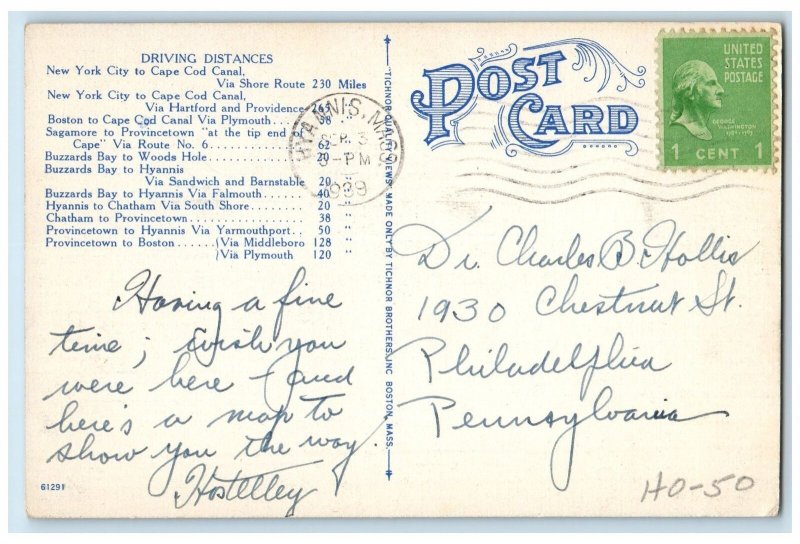 DRIVING DISTANCES
New York City to Cape Cod Canal,
Via Shore Route 230 Miles
New York City to Cape Cod Canal,
Via Hartford and Providence 265 "
Boston to Cape Cod Canal Via Plymouth.... 58 "
Sagamore to Provincetown "at the tip end of
Cape" Via Route No. 6.................. 62 "
Buzzards Bay to Woods Hole.............. 20 "
Buzzards Bay to Hyannis
Via Sandwich and Barnstable 20 "
Buzzards Bay to Hyannis Via Falmouth...... 40 "
Hyannis to Chatham Via South Shore........ 20 "
Chatham to Provincetown.................. 38 "
Provincetown to Hyannis Via Yarmouthport.. 50 "
Provincetown to Boston......{Via Middleboro 128 "
}Via Plymouth 120 "
Having a fine
time; wish you
were here - and
here's a map to
show you the way.
Hostelley
61291
"TICHNOR QUALITY VIEWS" MADE ONLY BY TICHNOR BROTHERS, INC. BOSTON, MASS.
HYANNIS, MASS.
SEP 3
PM
1939
POST
CARD
UNITED
STATES
POSTAGE
GEORGE
WASHINGTON
1789-1797
1 CENT 1
Dr. Charles B. Hollis
1930 Chestnut St.
Philadelphia
Pennsylvania
HO-50